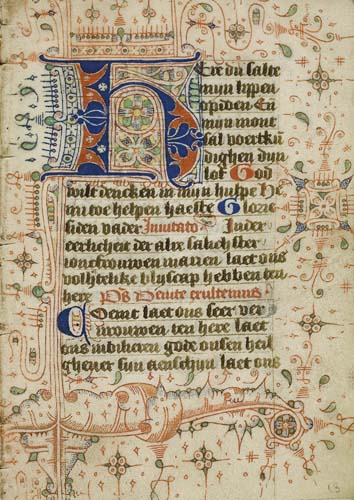 Here du salte
mijn lippen
opdoen En
mijn mont
sal voertkū
dighen dijn
lof God
wilt dencken in mijn hulpe He
mi toe helpen haeste Glorie
si den vader Invitato In der
eerlicheit der alre salichster
ioncfrouwen marien laet ons
blyscap hebben ten
here Ps Venite exultemus
Coemt laet ons seer ver
vrouwen ten here laet
ons gode onsen heil
ghever sijn aenschijn laet ons